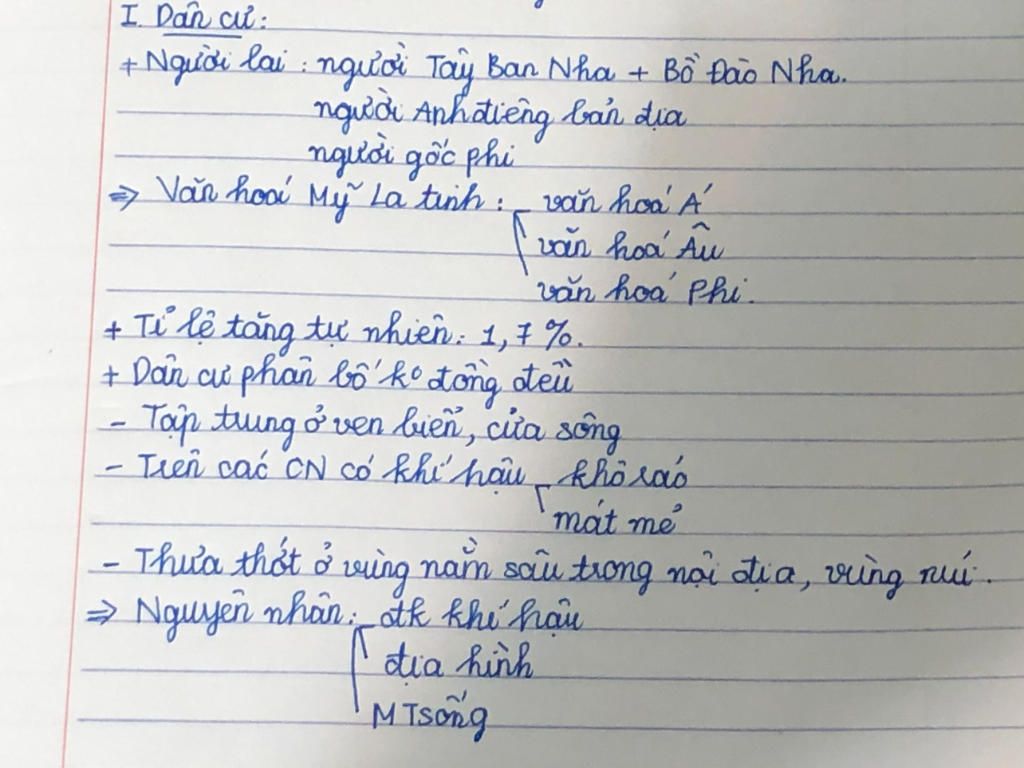 I. Dân cư:
+ Người lai : người Tây Ban Nha + Bồ Đào Nha.
người Anhđiêng bản địa
người gốc phi
=> Văn hoá Mỹ La tinh : văn hoá Á
văn hoá Âu
văn hoá Phi.
+ Tỉ lệ tăng tự nhiên: 1,7 %.
+ Dân cư phân bố ko đồng đều
- Tập trung ở ven biển, cửa sông
- Trên các CN có khí hậu khô ráo
mát mẻ
- Thưa thớt ở vùng nằm sâu trong nội địa, vùng núi.
=> Nguyên nhân: đk khí hậu
địa hình
MTsống